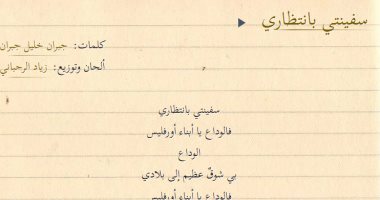 سفينتي بانتظاري
كلمات: جبران خليل جبران
ألحان وتوزيع: زياد الرحباني
سفينتي بانتظاري
فالوداع يا أبناء أورفليس
الوداع
بي شوقٌ عظيم إلى بلادي
فالوداع يا أبناء أورفليس